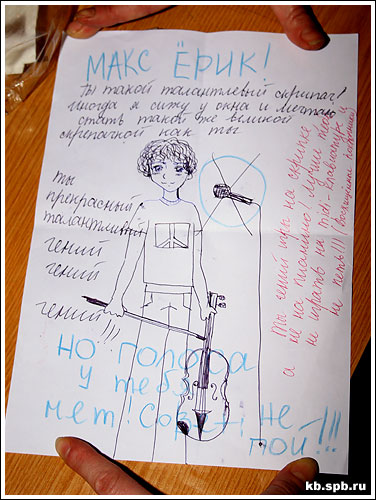 МАКС ЁРИК!
Ты такой талантлевый скрипач!
Иногда я сижу у окна и мечтаю
стать такой же великой
скрепачкой как ты
ты
прекрасный,
талантливый
гений
гений
гений!!!
Ты гений игры на скрипке
а не на пианино! Лучше тебе
не играть на midi-клавиатуре и
не петь!!!
НО ГОЛОСА
у тебя
нет! Sorri не
пой!!!
kb.spb.ru